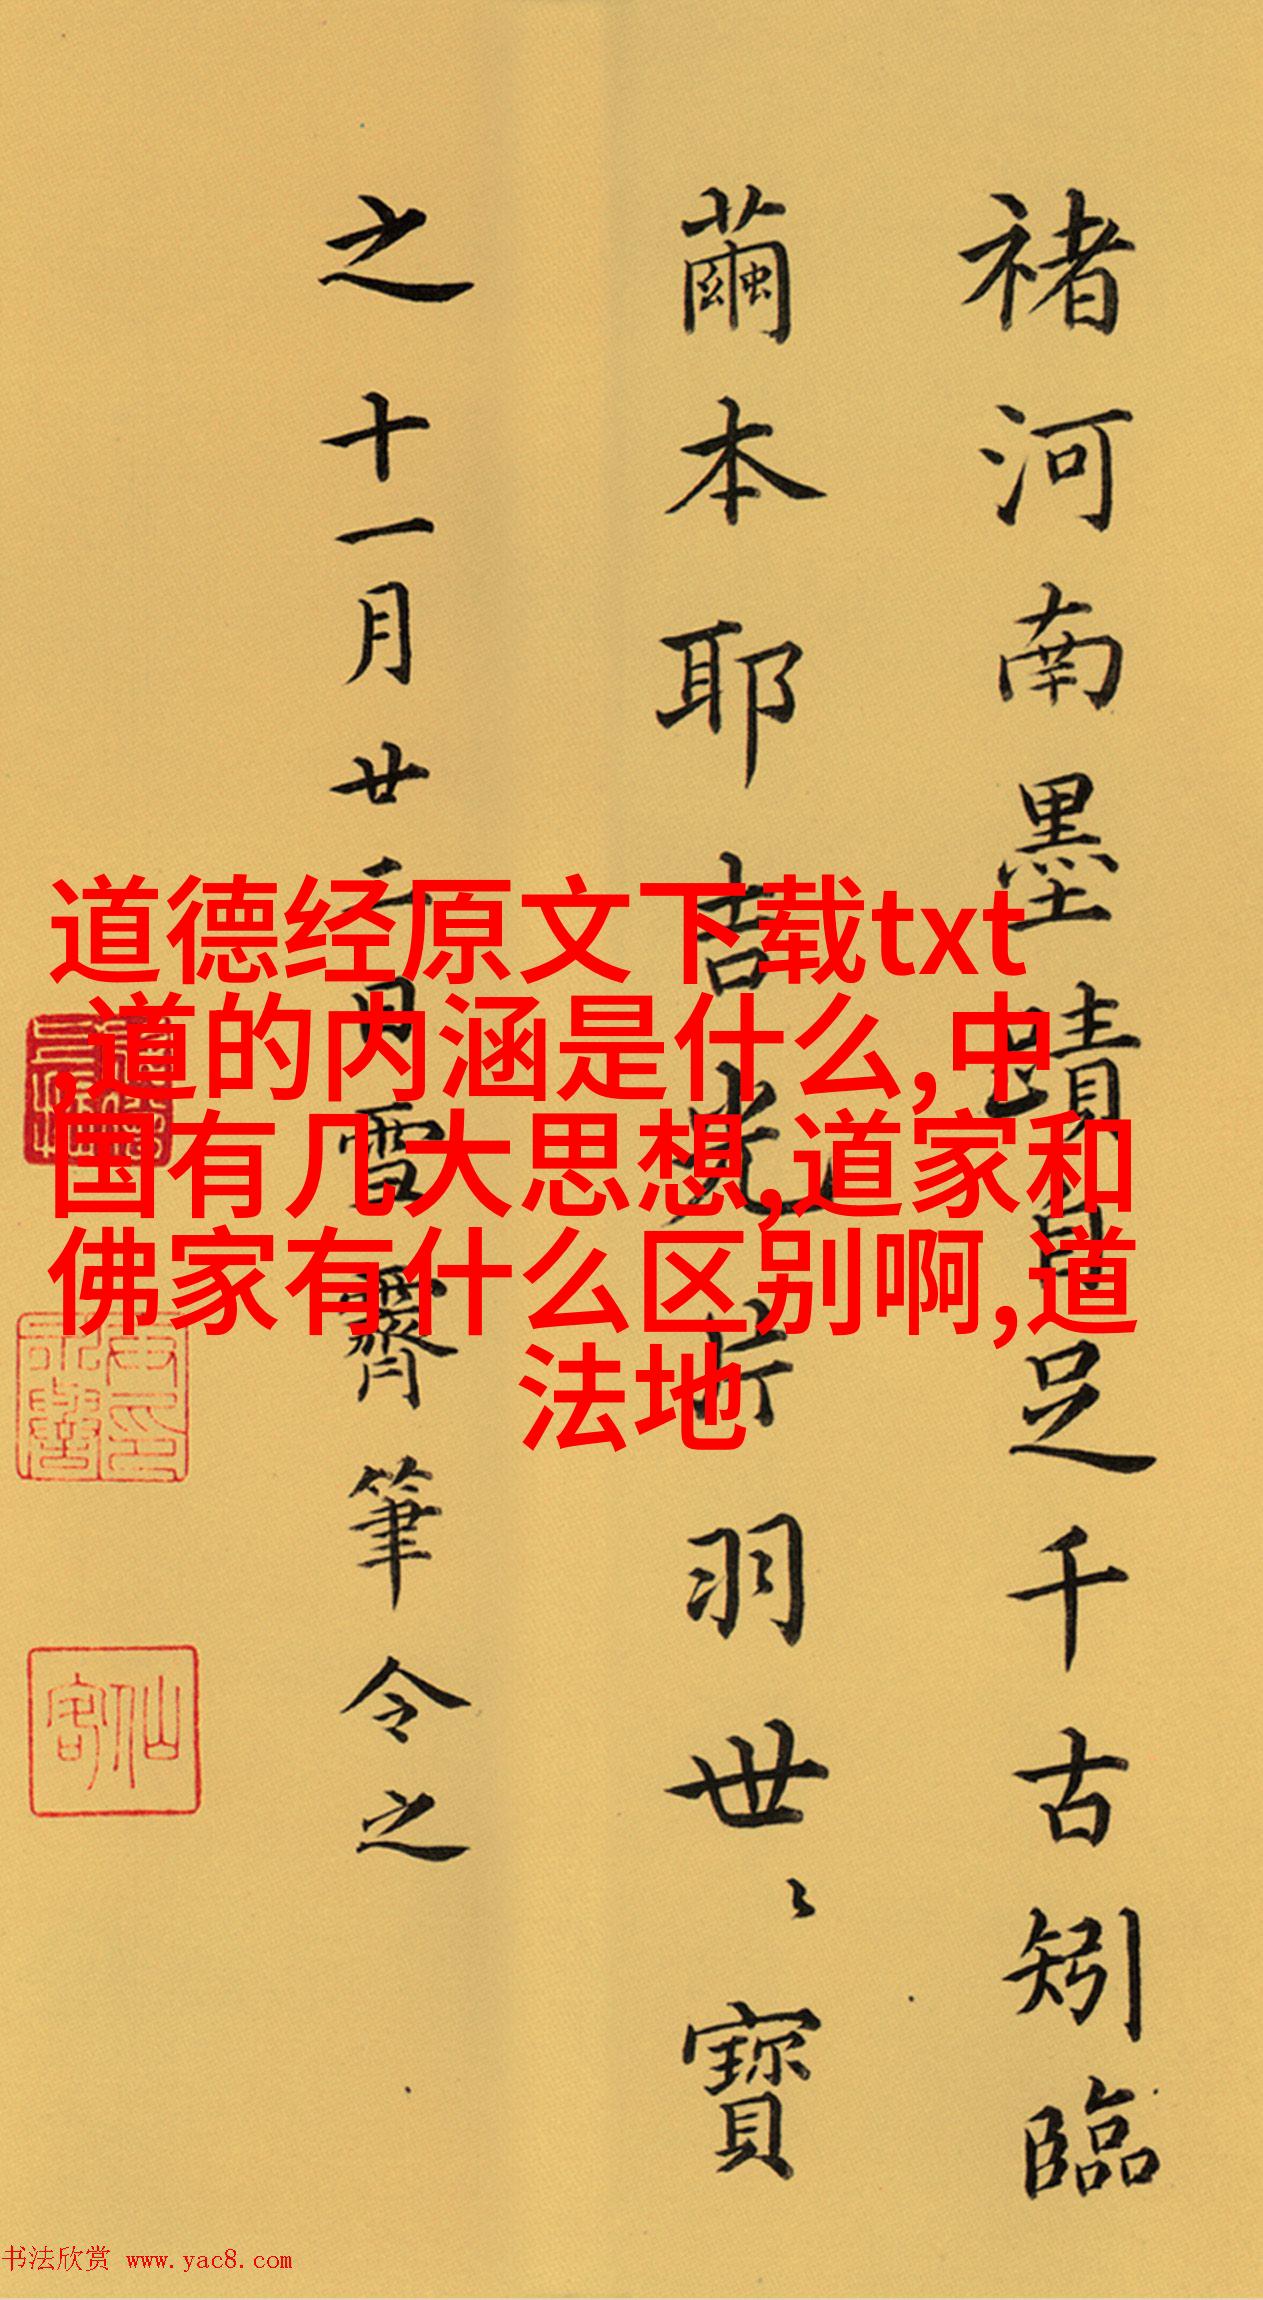 褚河南墨蹟自足千古矧臨
繭本耶吉光片羽世〻寶
之十一月廿二日雪霽筆令之
道德经原文下载txt
,道的内涵是什么,中
国有几大思想,道家和
佛家有什么区别啊,道
法地
仙客
书法欣赏 www.yac8.com